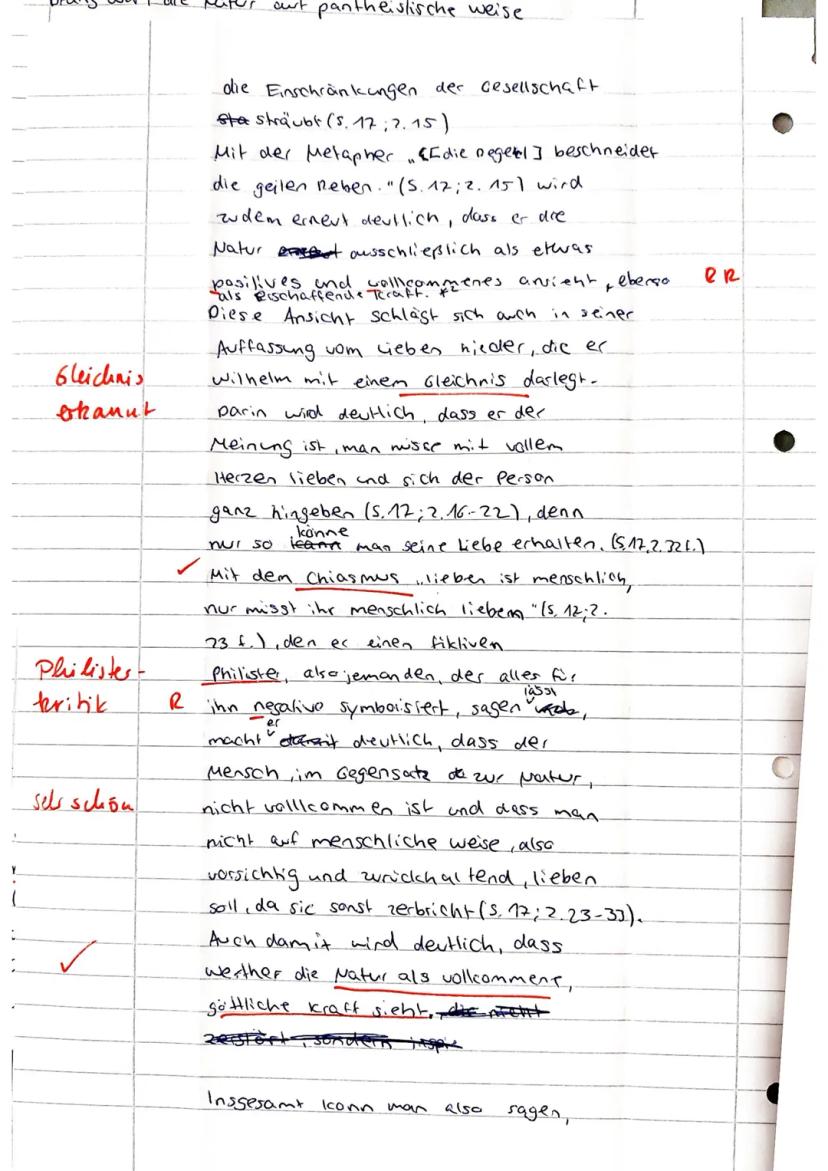 die Natur auf pantheistische weise
die Einschränkungen der Gesellschaft
sta sträubt (S. 17; Z. 15)
Mit der Metapher „[die Regel] beschneidet
die geilen Reben." (S. 17; Z. 15) wird
zudem erneut deutlich, dass er die
Natur ausschließlich als etwas
positives und vollkommenes ansieht, ebenso R R
als erschaffende Kraft. *2
Diese Ansicht schlägt sich auch in seiner
Auffassung vom Lieben nieder, die er
Gleichnis Wilhelm mit einem Gleichnis darlegt.
erkannt Darin wird deutlich, dass er der
Meinung ist, man müsse mit vollem
Herzen lieben und sich der Person
ganz hingeben (S. 17; Z. 16-22), denn
nur so kann könne man seine Liebe erhalten. (S. 17, Z. 32f.)
✓ Mit dem Chiasmus „lieben ist menschlich,
nur müsst ihr menschlich lieben" (S. 17; Z.
23 f.), den er einen fiktiven
Philister- Philister, also jemanden, der alles für
kritik R ihn negative symbolisiert, sagen lässt,
macht er deutlich, dass der
Mensch, im Gegensatz zur Natur,
sehr schön nicht vollkommen ist und dass man
nicht auf menschliche weise, also
vorsichtig und zurückhaltend, lieben
soll, da sie sonst zerbricht (S. 17; Z. 23-33).
Auch damit wird deutlich, dass
✓ Werther die Natur als vollkommene,
göttliche Kraft sieht, die nicht
zerstört, sondern inspi
Insgesamt kann man also sagen,